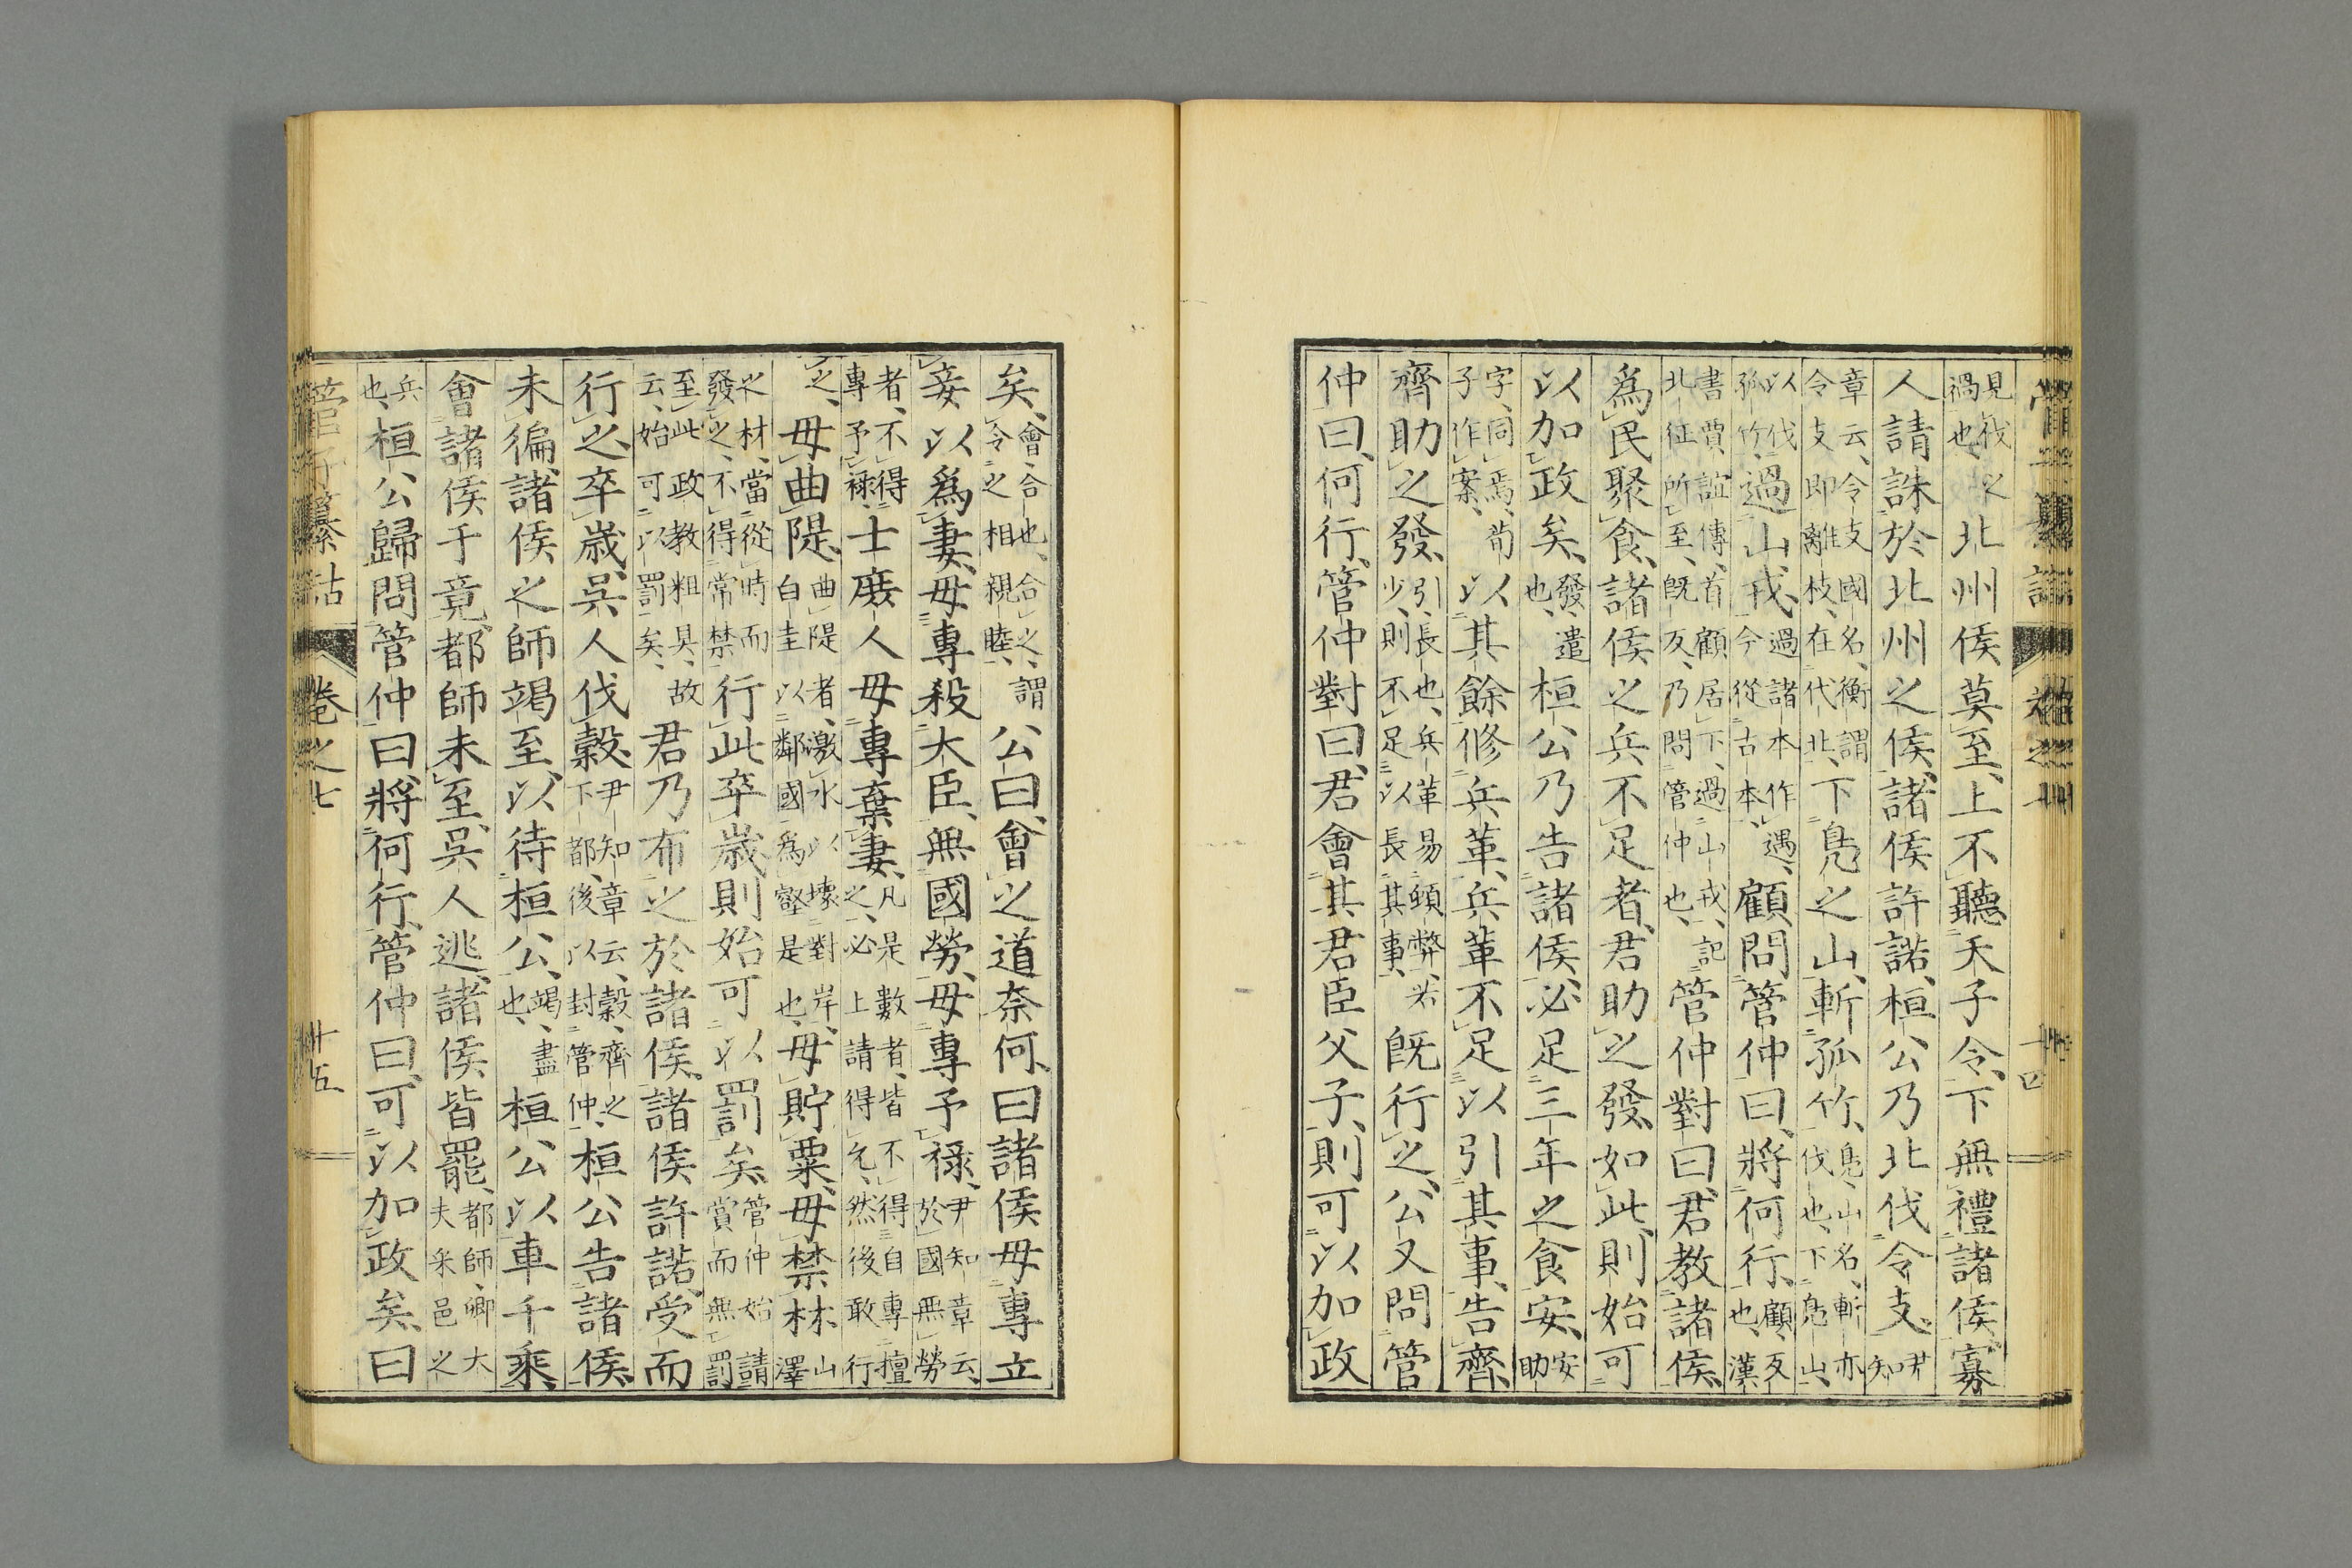 管子纂詁　卷之七　十四
見伐之過也、北州侯莫至、上不聽天子令、下無禮諸侯、寡
人請誅於北州之侯、諸侯許諾、桓公乃北伐令支、尹知
章云、令支國名、衡謂令支即離枝、在代北、下鳧之山、斬孤竹、鳧、山名、斬亦伐也、下鳧山、
以伐孤竹、過山戎、過諸本作遇、今從古本、顧問管仲曰、將何行、顧、反也、漢
書賈誼傳、首顧居下、過山戎、記北征所至、既反、乃問管仲也、管仲對曰、君教諸侯
爲民聚食、諸侯之兵不足者、君助之發、如此、則始可
以加政矣、發、遣也、桓公乃告諸侯、必足三年之食安、安助
字、同焉、荀子作案、以其餘修兵革、兵革不足以引其事、告齊、
齊助之發、引、長也、兵革易頓弊、若少、則不足以長其事、既行之、公又問管
仲曰、何行、管仲對曰、君會其君臣父子、則可以加政
矣、會、合也、合之、謂令之相親睦、公曰、會之道奈何、曰諸侯毋專立
妾以爲妻、毋專殺大臣、無國勞、毋專予祿、尹知章云、於國無勞
者、不得專予祿、士庶人毋專棄妻、凡是數者、皆不得自專擅之、必上請得乞、然後敢行
之、毋曲隄、曲隄者、激水以壞對岸、白圭以鄰國爲壑是也、毋貯粟、毋禁材、山澤
之材、當從時而發之、不得常禁、行此卒歲、則始可以罰矣、管仲始請賞而無罰
至此政教粗具、故云、始可以罰矣、君乃布之於諸侯、諸侯許諾、受而
行之、卒歲、吳人伐穀、尹知章云、穀、齊之下都、後以封管仲、桓公告諸侯、
未徧、諸侯之師竭至、以待桓公、竭、盡也、桓公以車千乘、
會諸侯于竟、都師未至、吳人逃、諸侯皆罷、都師、卿大夫采邑之
兵也、桓公歸問管仲曰、將何行、管仲曰、可以加政矣、曰
管子纂詁　卷之七　十五